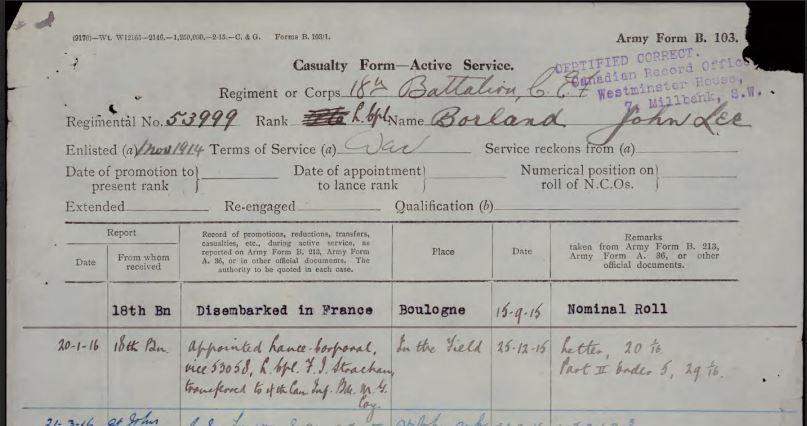 (9178)—Wt. W12165—2146.—1,250,000.—2-15.—C. & G. Forms B. 103/1.
Army Form B. 103.
Casualty Form—Active Service.
CERTIFIED CORRECT.
Canadian Record Office
Westminster House,
7, Millbank, S.W.
Regiment or Corps 18th Battalion, C.E.F
Regimental No. 53999 Rank L. Cpl Name Borland John Lee
Enlisted (a) 1 Nov 1914 Terms of Service (a) War Service reckons from (a)
Date of promotion to present rank } Date of appointment to lance rank } Numerical position on roll of N.C.Os. }
Extended Re-engaged Qualification (b)
Report
Date
From whom received
Record of promotions, reductions, transfers,
casualties, etc., during active service, as
reported on Army Form B. 213, Army Form
A. 36, or in other official documents. The
authority to be quoted in each case.
Place
Date
Remarks
taken from Army Form B. 213,
Army Form A. 36, or other
official documents.
18th Bn Disembarked in France Boulogne 15-9-15 Nominal Roll
20-1-16 18th Bn. Appointed Lance-Corporal, In the Field 25-12-15 Letter, 20/1/16.
vice 53058, L. Cpl. F. J. Strachan, Part II Orders 5, 29/1/16.
transferred to 4th Can. Inf. Bde. M. G.
Coy.
21-3-16 at Johns